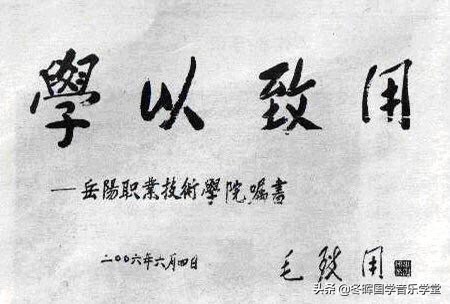 學以致用
—岳陽职業技術學院嘱書
二00六年六月四日
毛致用
头条 @冬晖国学音乐学堂